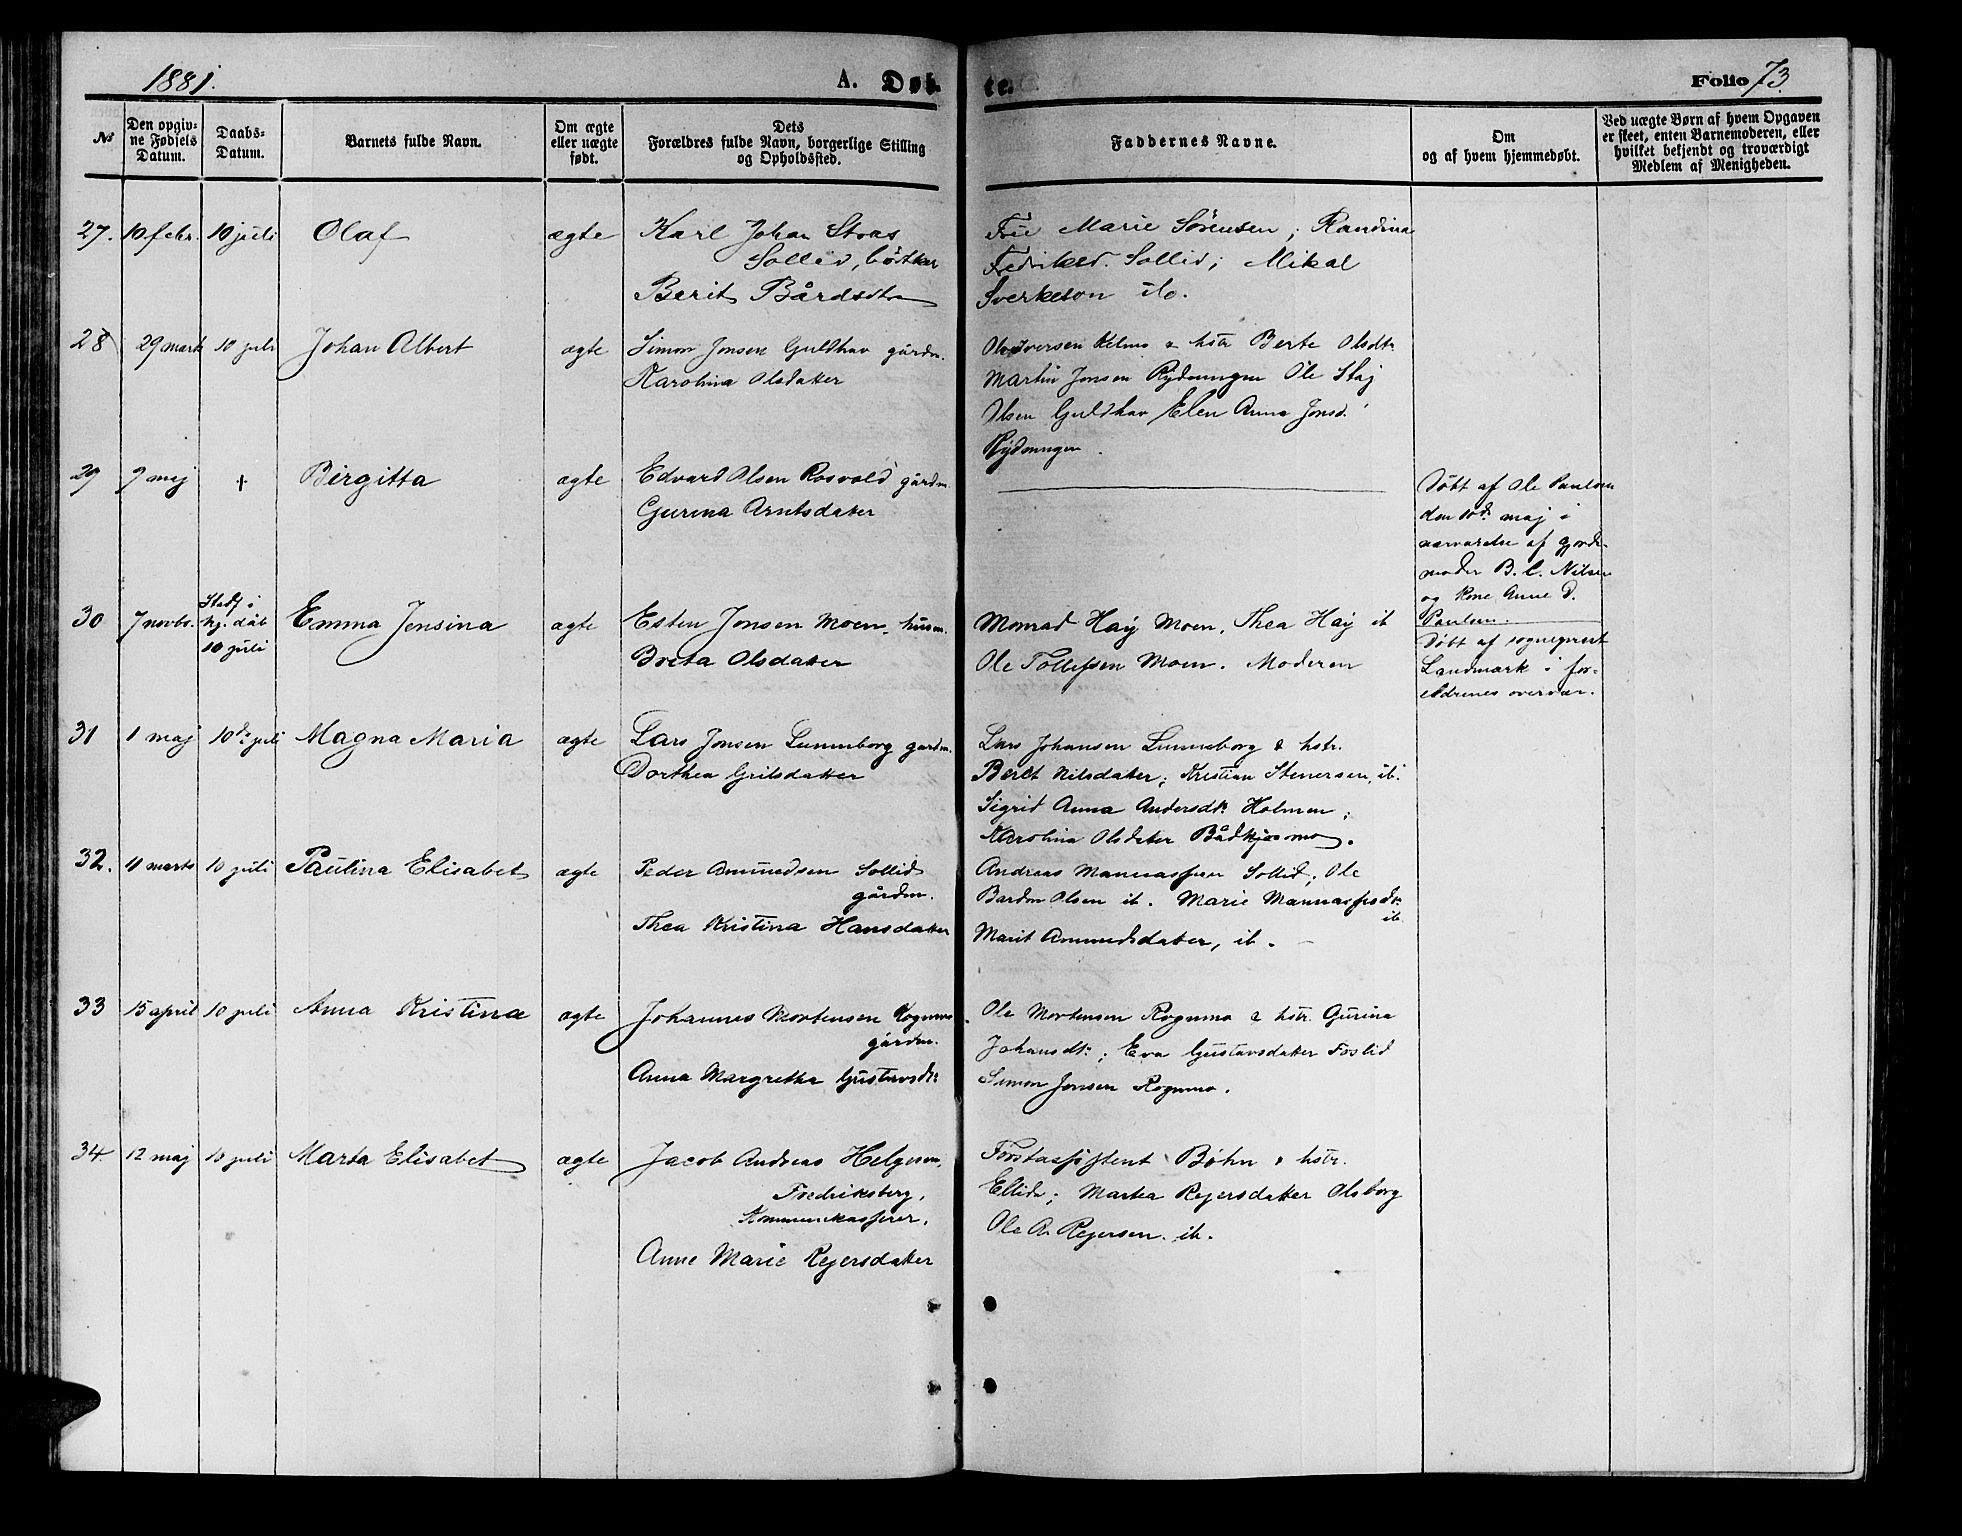 1881.
A. Døb
te.
Folio 73.
No
Den opgiv-
ne Fødsels
Datum.
Daabs-
Datum.
Barnets fulde Navn.
Om ægte
eller uægte
født.
Dets
Forældres fulde Navn, borgerlige Stilling
og Opholdssted.
Faddernes Navne.
Om
og af hvem hjemmedøbt.
Ved uægte Børn af hvem Opgaven
er skeet, enten Barnemoderen, eller
hvilket bekjendt og troværdigt
Medlem af Menigheden.
27. 10 febr. 10 juli Olaf ægte Karl Johan
Sollid, bödker
Berit Bårdsdtr
Marie Sörensen; Randina
Sollid; Mikal
ib.
28 29 marts 10 juli Johan Albert ægte Simon Jonsen Guldhav gårdm.
Karolina Olsdatter
Ole Iversen Kelmo & hstr Berte Olsdtr
Martin Jonsen Rydningen Ole
Olsen Guldhav Elen Anna Jonsd.
Rydningen.
29 9 maj + Birgitta ægte Edvard Olsen Rosvold gårdm.
Gurina Arntsdater
Döbt af Ole Paulsen
den 10de maj i
nærværelse af gjorde-
moder B. C. Nilsen
og kone Anne D.
Paulsen.
30 7 novbr. Stadf. i
hj. dåb
10 juli
Emma Jensina ægte Esten Jonsen Moen, husm.
Brita Olsdatter
Monrad Haij Moen, Thea Haij ib
Ole Tollefsen Moen. Moderen
Döbt af sogneprest
Landmark i for-
eldrenes overvær.
31 1 maj 10de juli Magna Maria ægte Lars Jonsen Lunneborg gårdm.
Dorthea Grilsdatter
Lars Johansen Lunneborg & hstr.
Beret Nilsdater; Kristian Stenersen, ib.
Sigrid Anna Andersdtr Holmen;
Karolina Olsdater Bådkjosmo.
32. 11 marts 10 juli Paulina Elisabet ægte Peder Amundsen Sollid
gårdm.
Thea Kristina Hansdatter
Andreas Mannassen Sollid; Ole
Bardon Olsen ib. Marie Mannassesdtr
ib
Marit Ammundsdater, ib.
33 15 april 10 juli Anna Kristina ægte Johannes Mortensen Rognmo
gårdm.
Anna Margretha Gustavsdtr
Ole Mortensen Rognmo & hstr. Gurina
Johansdtr; Eva Gustavsdater Foslid
Simon Jonsen Rognmo.
34. 12 maj 10 juli Marta Elisabet ægte Jacob Andreas Helgesen,
Fredriksberg,
Kommunekasserer,
Anne Marie Rejersdatter
Forstassistent Böhn & hstr.
Ellid; Martea Rejersdatter Olsborg
Ole A. Rejersen. ib.